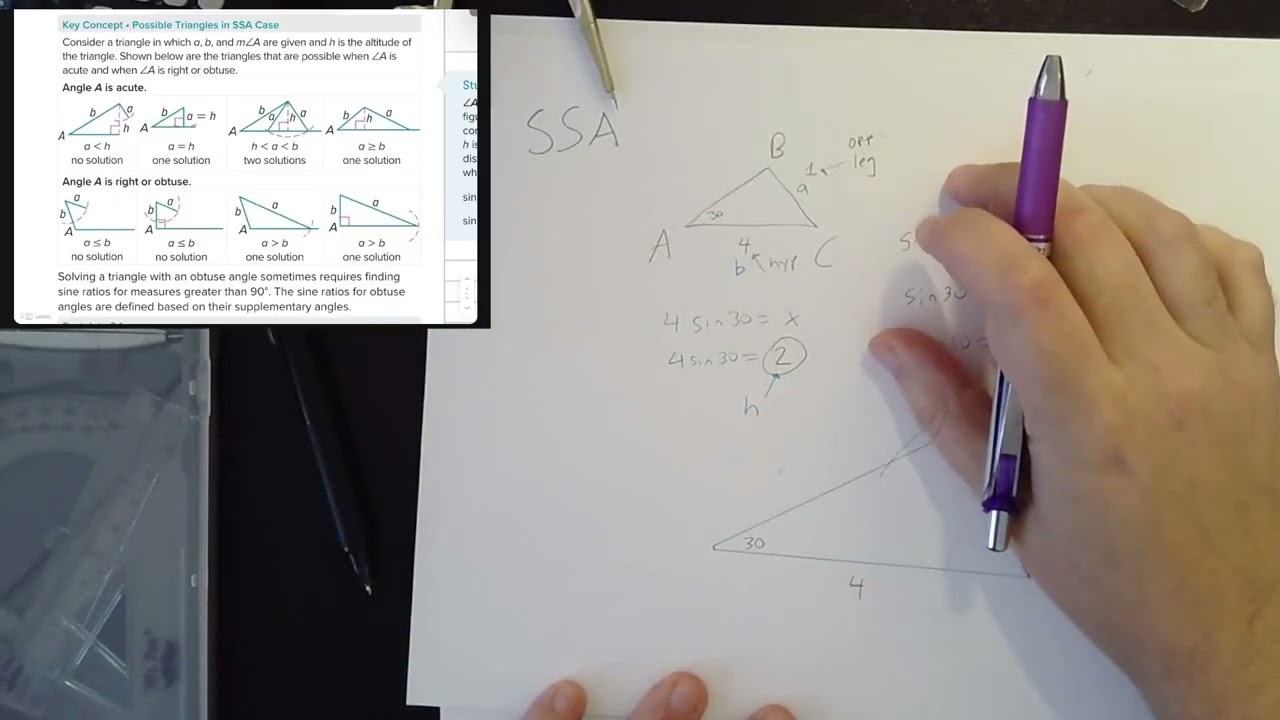 Key Concept • Possible Triangles in SSA Case
Consider a triangle in which a, b, and m∠A are given and h is the altitude of
the triangle. Shown below are the triangles that are possible when ∠A is
acute and when ∠A is right or obtuse.
Angle A is acute.
b a h A
b a = h A
b a h a A
b h a A
a < h
no solution
a = h
one solution
h < a < b
two solutions
a ≥ b
one solution
Angle A is right or obtuse.
a b A
a b A
b a A
b a A
a ≤ b
no solution
a ≤ b
no solution
a > b
one solution
a > b
one solution
Solving a triangle with an obtuse angle sometimes requires finding
sine ratios for measures greater than 90°. The sine ratios for obtuse
angles are defined based on their supplementary angles.
Stu
∠A
figu
con
h is
dis
wh
sin
sin
SSA
B
opp
leg
1
a
30
A
4
b
hyp
C
4 sin 30 = x
4 sin 30 = 2
h
sin 30
30
4